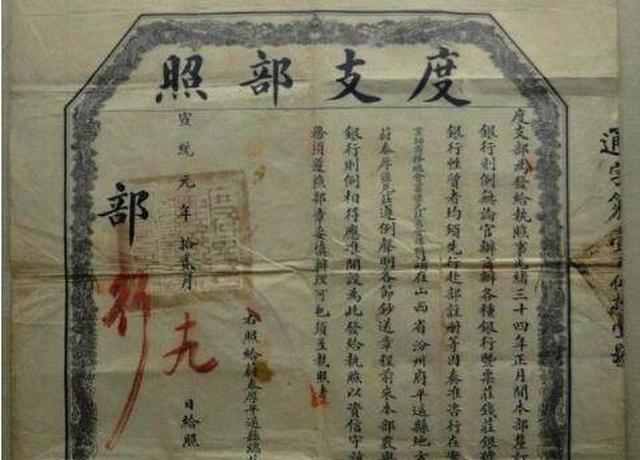 度支部照
度支部為發給執照事光緒三十四年正月間本部奏訂
銀行則例無論官辦商辦各種銀行暨票莊錢莊銀號
銀行性質者均須先行赴部註冊等因奏准咨行在案
在山西省汾州府平遙縣地方
蔚泰厚匯兌莊遵例聲明各節鈔送章程前來本部覈與
銀行則例相符應准開設為此發給執照以資信守該
務須遵照部章妥慎辦理可也須至執照者
右照給蔚泰厚平遙縣總
宣統元年拾貳月
十九
日給照
部
行
通字第壹